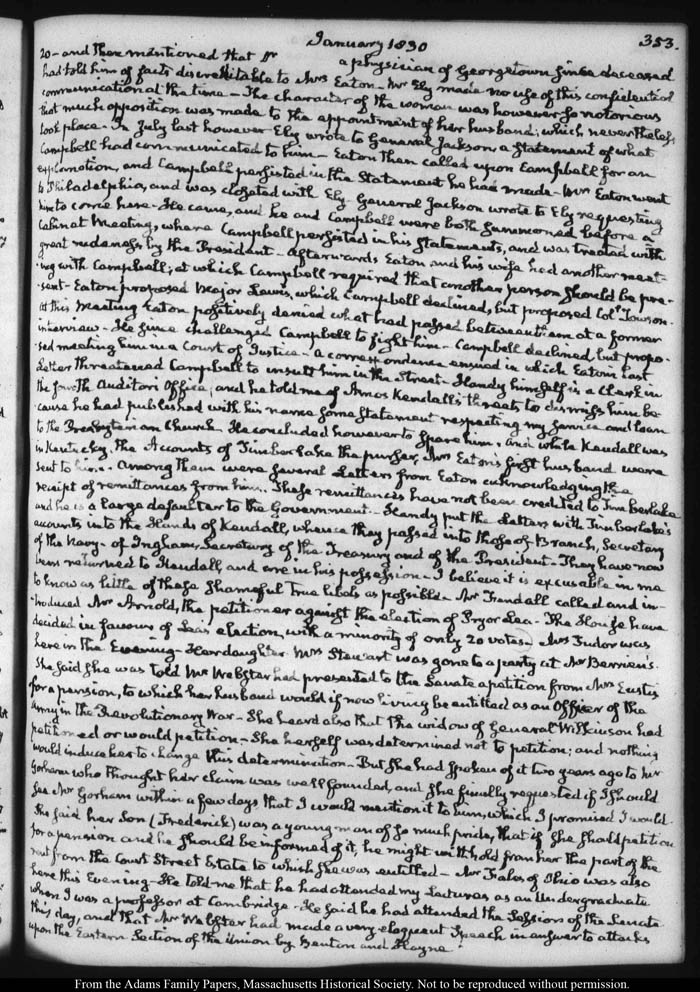 January 1830
353.
20 - and then mentioned that Dr a physician of Georgetown since deceased
had told him of facts discreditable to Mrs Eaton - Mr Ely made no use of this confidential
communication at the time - The character of the woman was however so notorious
that much opposition was made to the appointment of her husband; which nevertheless
took place. In July last however Ely wrote to General Jackson, a statement of what
Campbell had communicated to him - Eaton then called upon Campbell for an
explanation, and Campbell persisted in the Statement he had made - Mrs Eaton went
to Philadelphia, and was closeted with Ely. General Jackson wrote to Ely requesting
him to come here - He came, and he and Campbell were both summoned before a
Cabinet Meeting, where Campbell persisted in his statements, and was treated with
great rudeness by the President - afterwards Eaton and his wife had another meet-
-ing with Campbell; at which Campbell required that another person should be pre-
-sent - Eaton proposed Major Lewis, which Campbell declined, but proposed Coll. Towson.
At this Meeting Eaton positively denied what had passed between them at a former
interview - He since challenged Campbell to fight him - Campbell declined, but propo-
-sed meeting him in a Court of Justice - a correspondence ensued in which Eaton's last
Letter threatened Campbell to insult him in the Street - Handy himself is a Clerk in
the fourth Auditor's Office; and he told me of Amos Kendall's threats to dismiss him be-
cause he had published with his name some statement respecting my service and loan
to the Presbyterian Church - He concluded however to spare him. And while Kendall was
in Kentucky, the Accounts of Timberlake the purser, Mrs Eaton's first husband were
sent to him. Among them were several Letters from Eaton acknowledging the
receipt of remittances from him. These remittances have not been credited to Timberlake
and he is a large defaulter to the Government - Handy put the Letters with Timberlake's
accounts into the Hands of Kendall, whence they passed into those of Branch, Secretary
of the Navy - of Ingham, Secretary of the Treasury and of the President - They have now
been returned to Kendall, and are in his possession - I believe it is excusable in me
to know as little of these shameful true libels as possible - Mr Trendall called and in-
-troduced Mr Arnold, the petitioner against the election of Pryor Lea - The House have
decided in favour of Lea's election, with a minority of only 20 votes. Mrs Tudor was
here in the Evening - Her daughter Mrs Stewart was gone to a party at Mr Berrien's.
She said she was told Mr Webster had presented to the Senate a petition from Mrs Eustis
for a pension, to which her husband would if now living be entitled as an Officer of the
Army in the Revolutionary War - She heard also that the widow of General Wilkinson had
petitioned or would petition - She herself was determined not to petition; and nothing
would induce her to change this determination - But she had spoken of it two years ago to Mr
Gorham who thought her claim was well founded, and she finally requested if I should
see Mr Gorham within a few days that I would mention it to him, which I promised I would.
She said her Son (Frederick) was a young man of so much pride, that if she should petition
for a pension and he should be informed of it, he might withhold from her the part of the
rent from the Court Street Estate to which she was entitled - Mr Fales of Ohio was also
here this Evening - He told me that he had attended my Lectures as an Undergraduate
when I was a professor at Cambridge - He said he had attended the Session of the Senate
this day, and that Mr Webster had made a very eloquent Speech in answer to attacks
upon the Eastern Section of the Union by Benton and Hayne
From the Adams Family Papers, Massachusetts Historical Society. Not to be reproduced without permission.